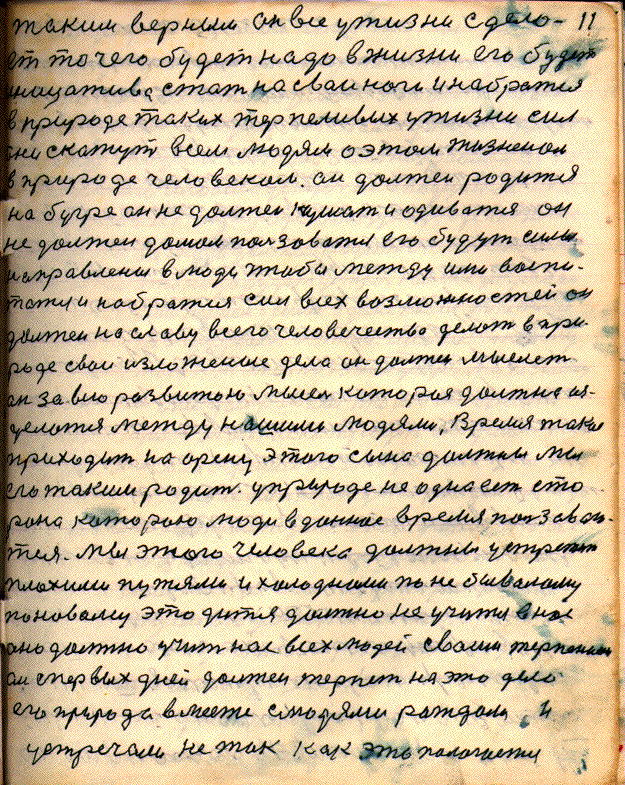 таким верным он вие ужизни сдело- 11
ет то чего будет надо вжизни его будет
инацатива стат на сваи ноги инабратся
в природе таких терпеливых ужизни сил
они скажут всем людям оэтом жизненом
в природе человеком. он должен родится
на бугре он не должен кушат и одиватся он
не должен домом ползоватся его будут силы
исправлены влюди чтобы между ими воспи-
татся и набратся сил всех возможностей он
должен на славу всего человечества делат впри-
роде сваи изложеные дела он должен мыслет
он за вию развитою мысел которая должна из-
делатся между нашими людями, Время такое
приходит на арену этого сына должны мы
его таким родит. уприроде не одна ест сто
рона которою люди вданое время ползваю-
тся. мы этого человека должны устретит
плохими путями и холодными по не бывалому
поновому это дитя должно не учится внас
оно должно учит нас всех людей сваим терпением
он спервых дней должен терпет на это дело
его природа вместе слюдями раждала, и
устречали не так как это палогается